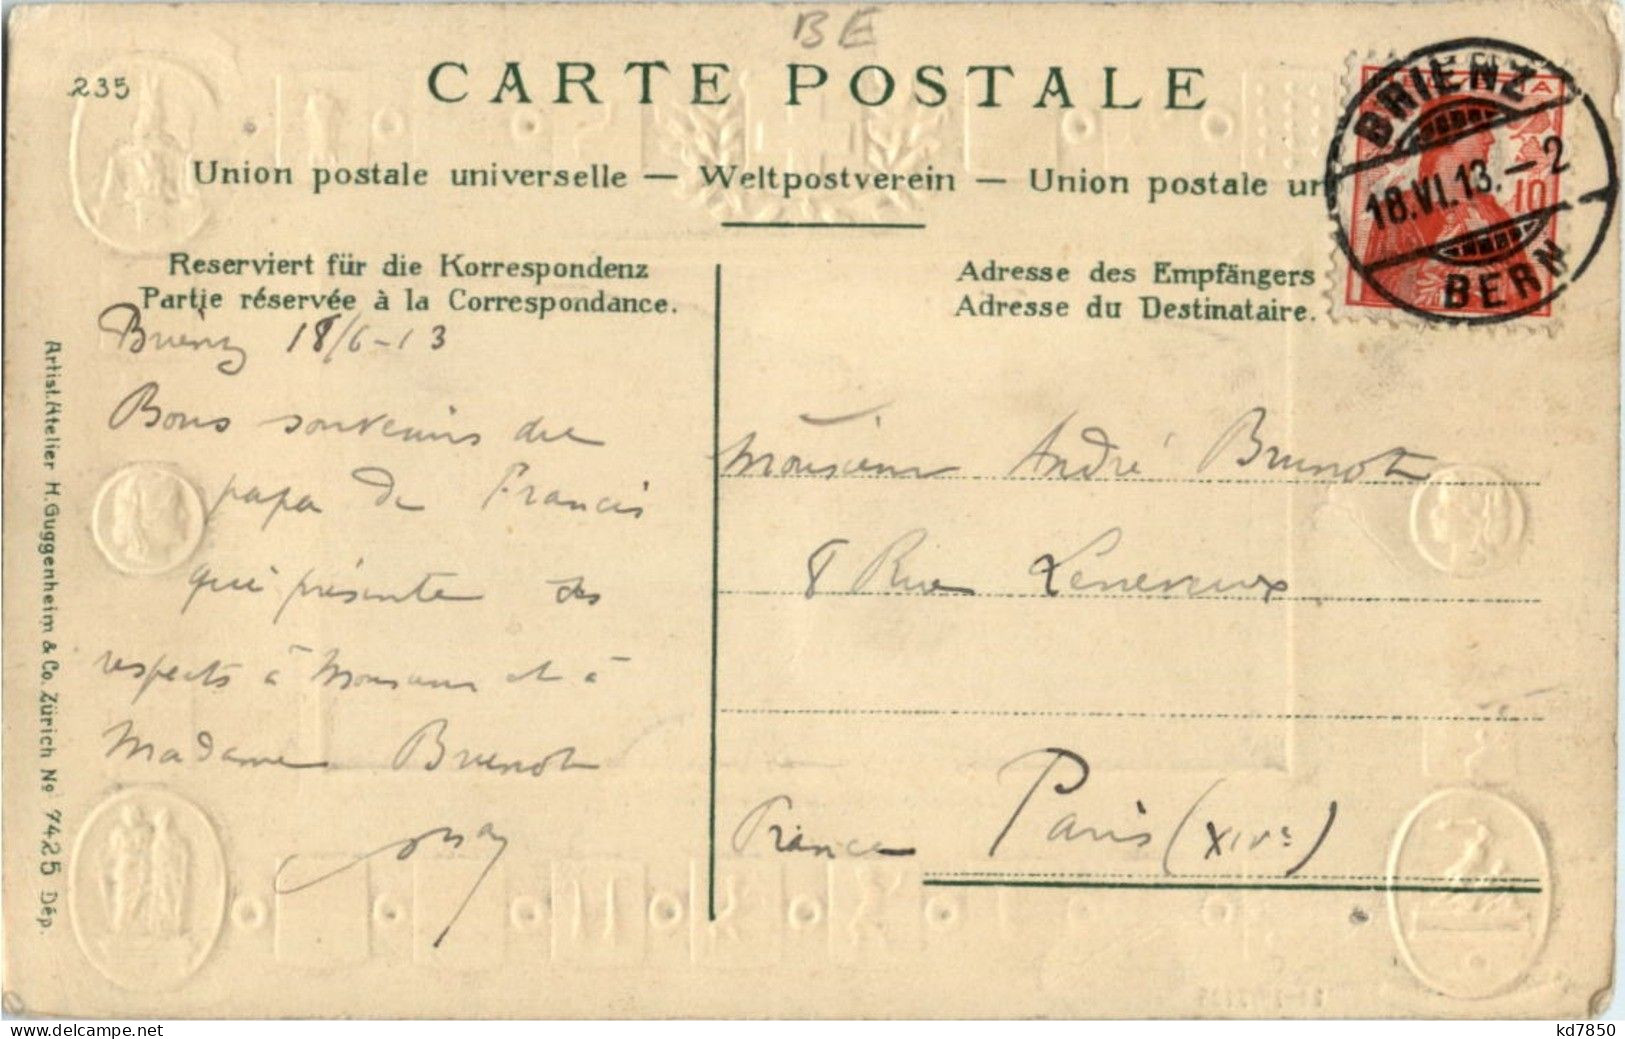 BE
235
CARTE POSTALE
Union postale universelle — Weltpostverein — Union postale un
BRIENZ
18.VI.13.–2
BERN
A
10
Reserviert für die Korrespondenz
Partie réservée à la Correspondance.
Adresse des Empfängers
Adresse du Destinataire.
Brienz 18/6-13
Bons souvenirs du
papa de Francis
qui présente ses
respects à Monsieur et à
Madame Brunot
Monsieur André Brunot
8 Rue Leneveux
Paris (XIVe)
France
Artist. Atelier H. Guggenheim & Co. Zürich No 7425 Dép.
kd7850